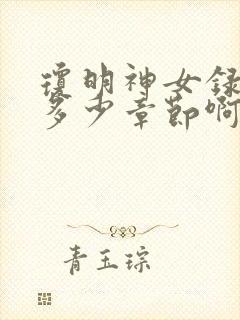 瓊明神女録
多少章節啊
青玉琮